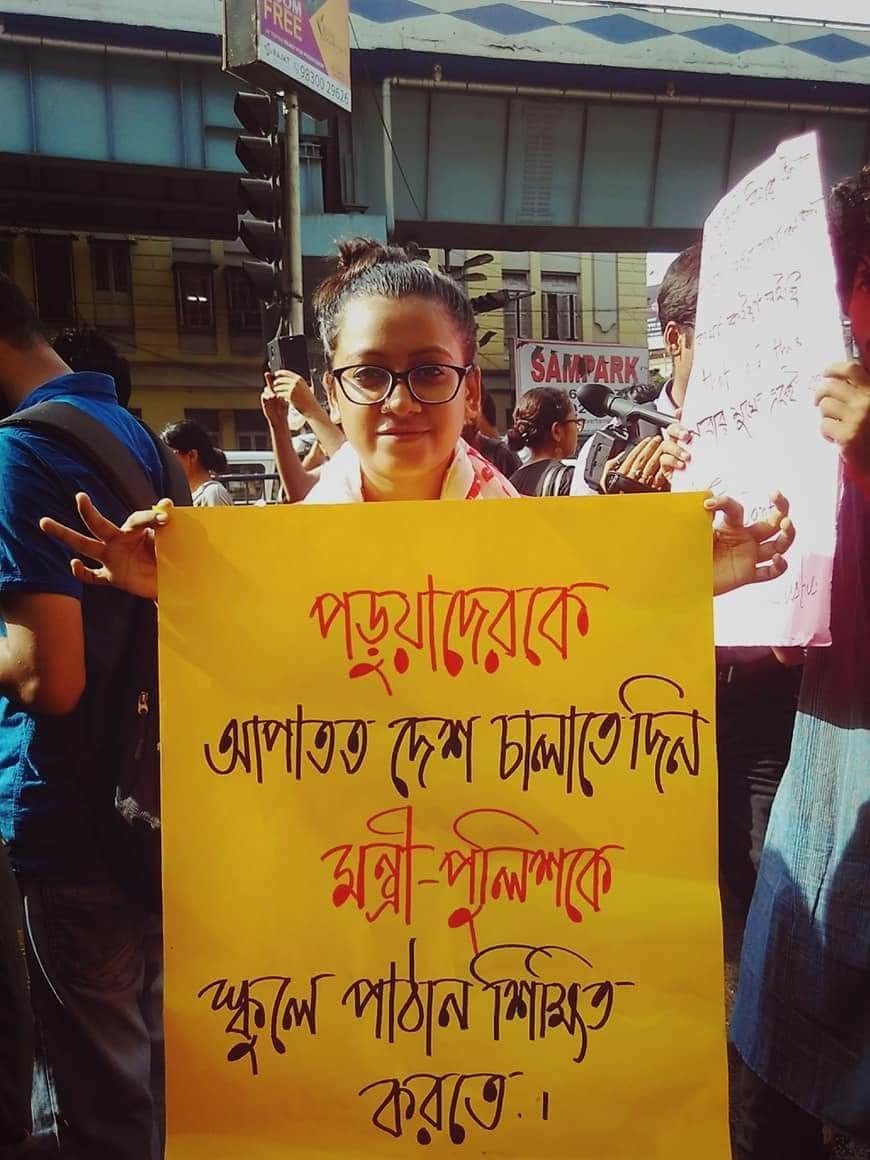 FREE
98300 29626
SAMPARK
পড়ুয়াদেরকে
আপাতত দেশ চালাতে দিন
মন্ত্রী-পুলিশকে
স্কুলে পাঠান শিক্ষিত
করতে।